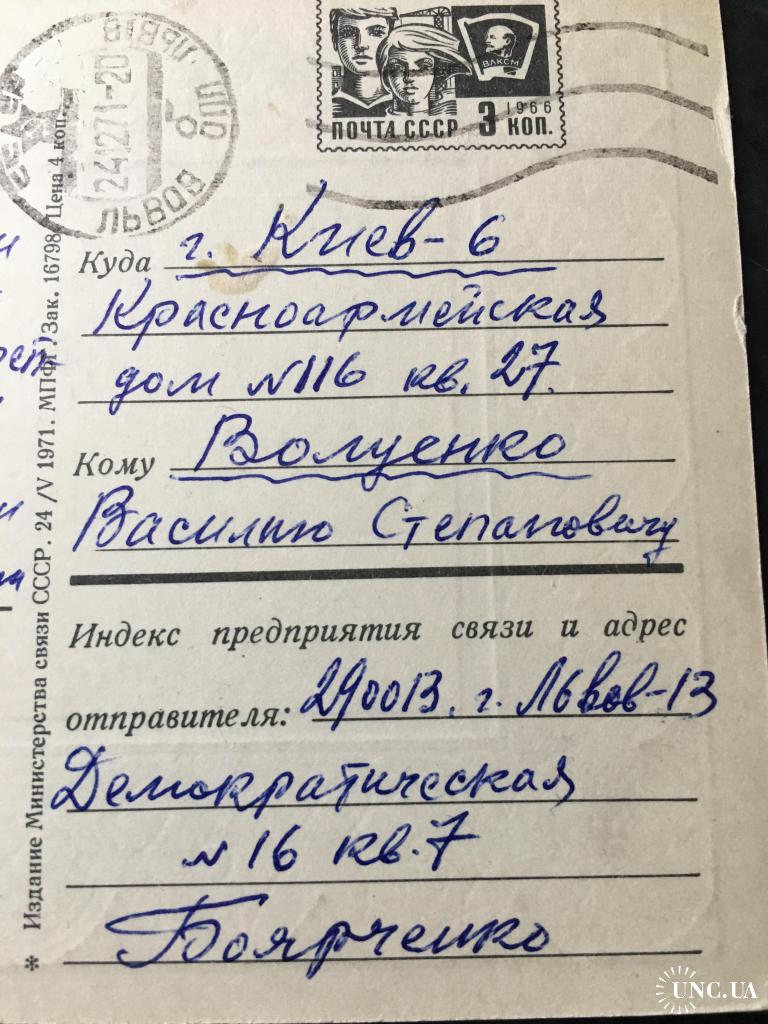 ЛЬВІВ ПШО
24.12.71-20
ЛЬВОВ
ВЛКСМ
1966
ПОЧТА СССР 3 КОП.
Куда г. Киев-6
Красноармейская
дом №116 кв. 27.
Кому Волуенко
Василию Степановичу
Индекс предприятия связи и адрес
отправителя: 290013. г. Львов-13
Демократическая
№16 кв. 7
Боярченко
* Издание Министерства связи СССР. 24/V 1971. МПФГ. Зак. 16798. Цена 4 коп.
UNC.UA